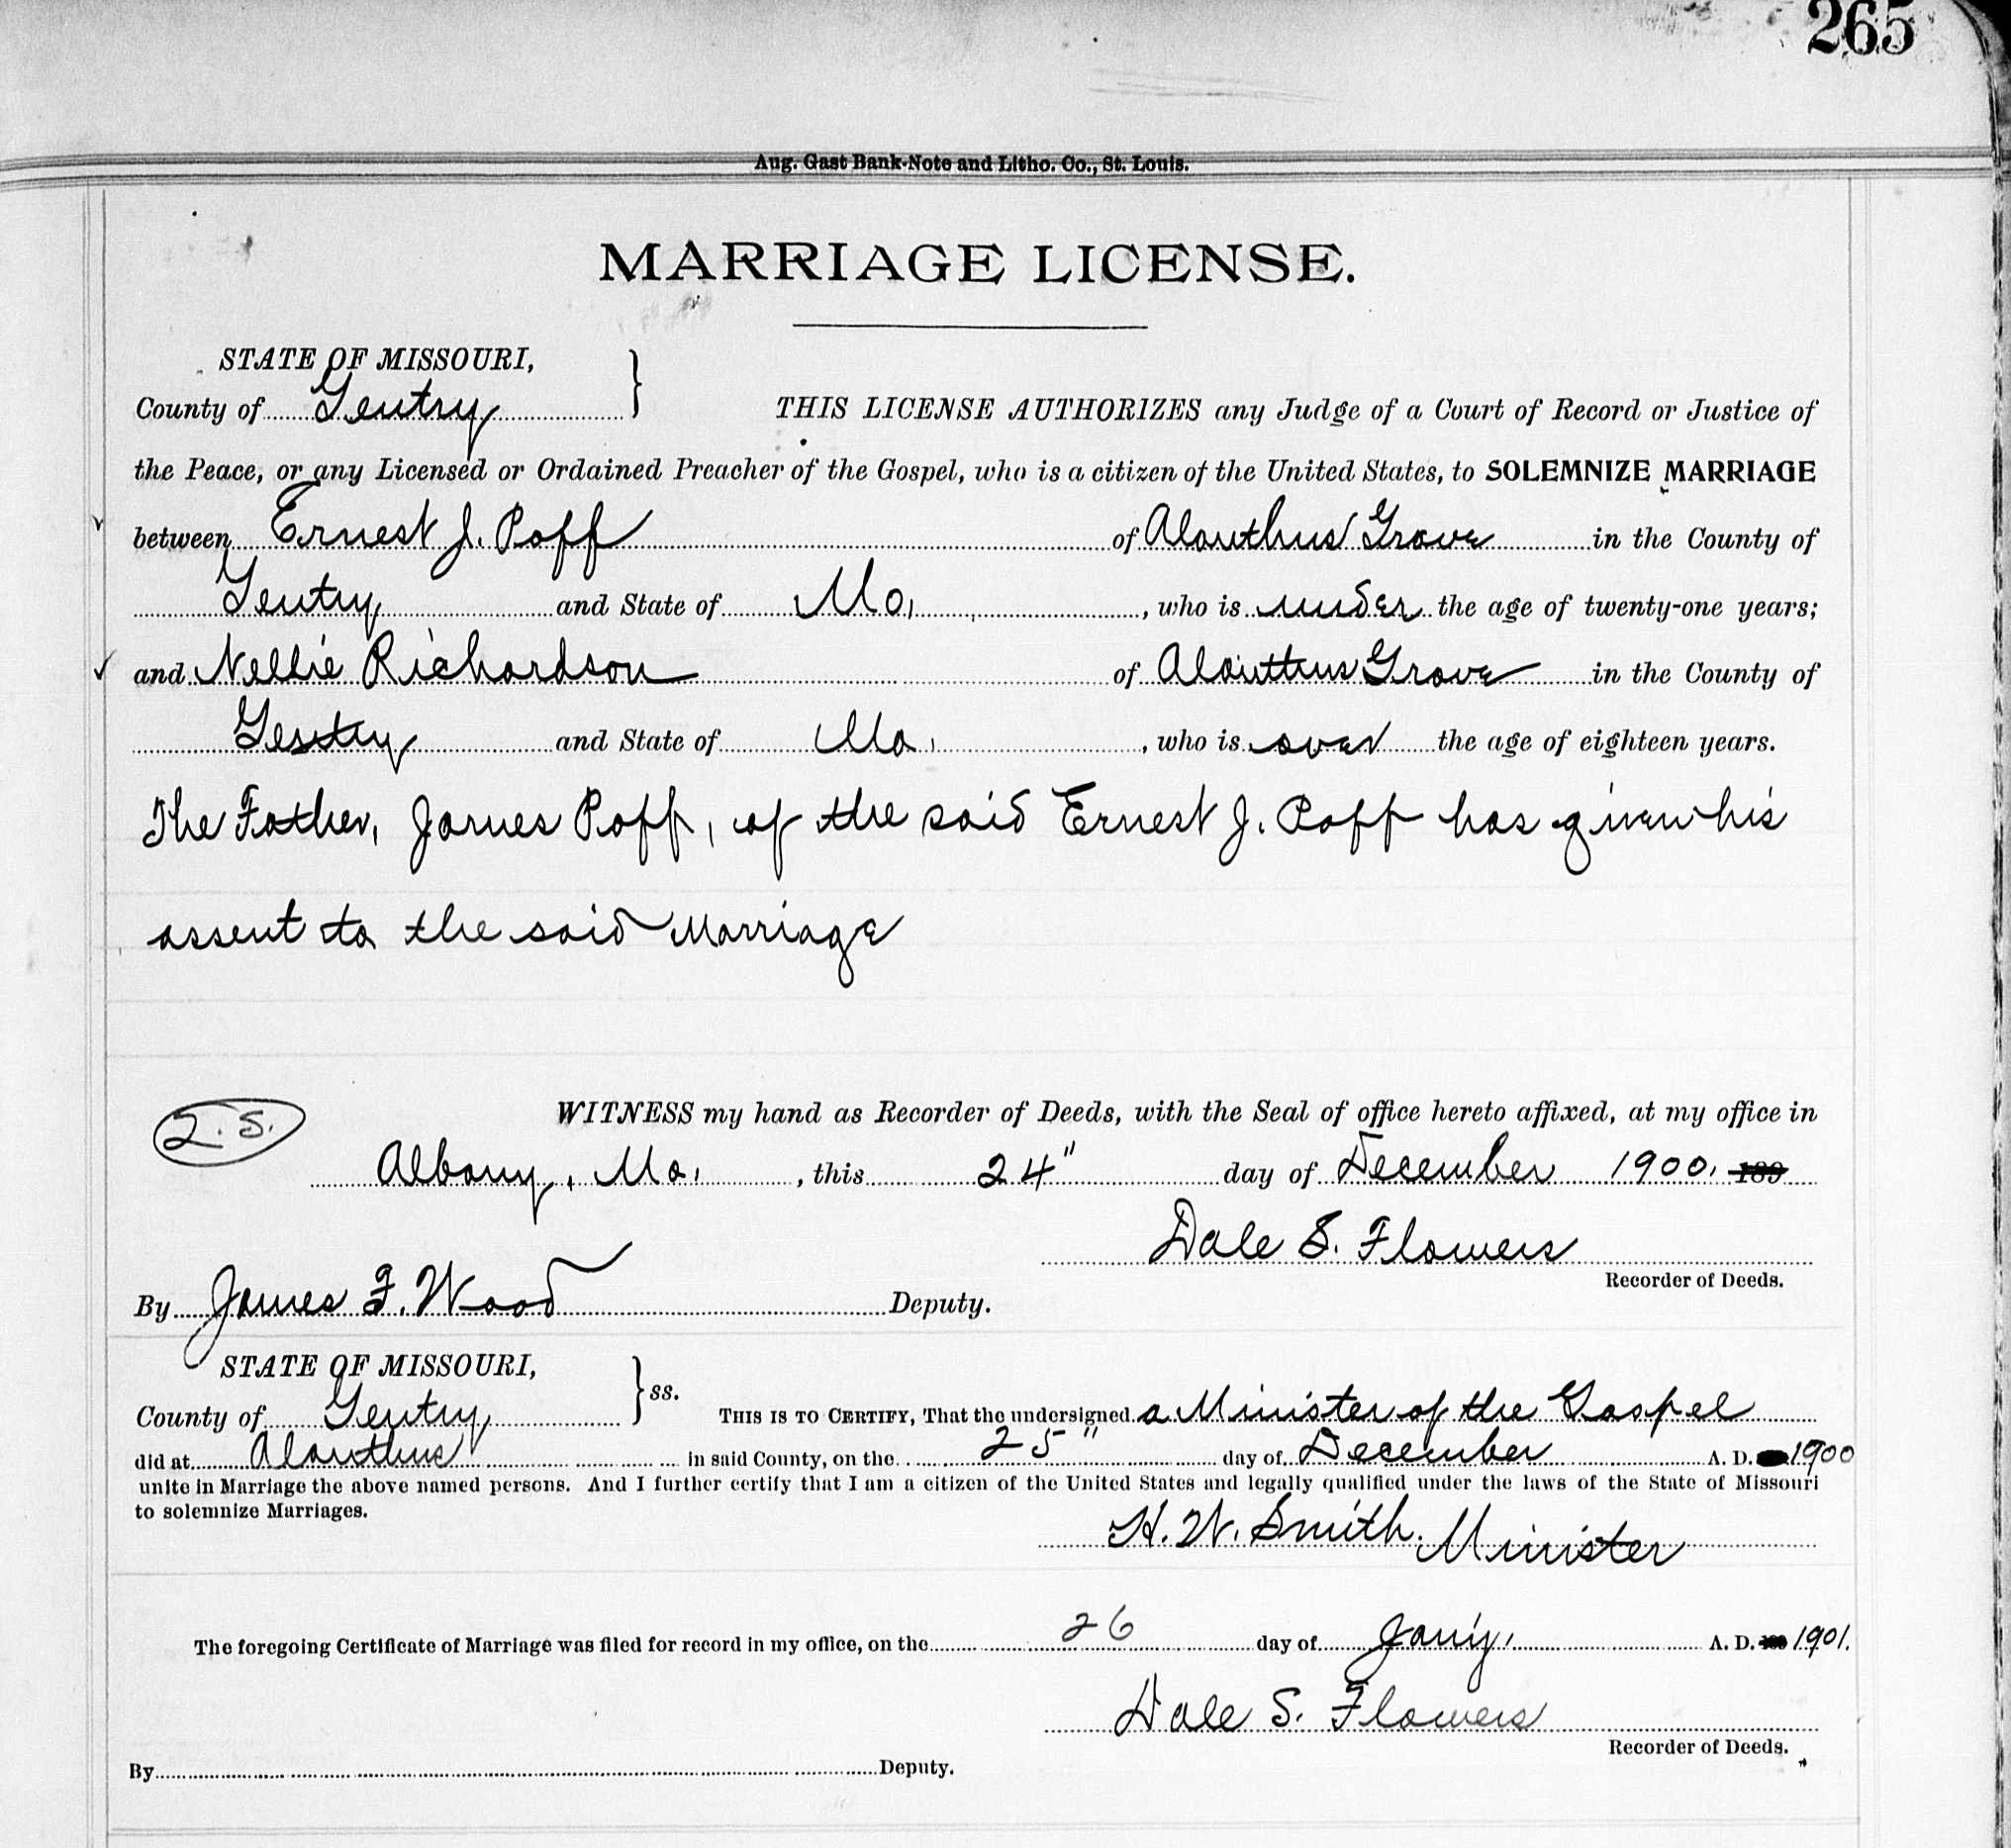 265
Aug. Gast Bank-Note and Litho. Co., St. Louis.
MARRIAGE LICENSE.
STATE OF MISSOURI,
County of Gentry } THIS LICENSE AUTHORIZES any Judge of a Court of Record or Justice of
the Peace, or any Licensed or Ordained Preacher of the Gospel, who is a citizen of the United States, to SOLEMNIZE MARRIAGE
between Ernest J. Poff of Alanthus Grove in the County of
Gentry and State of Mo. , who is under the age of twenty-one years;
and Nellie Richardson of Alanthus Grove in the County of
Gentry and State of Mo. , who is over the age of eighteen years.
The Father, James Poff, of the said Ernest J. Poff has given his
assent to the said Marriage
L.S. WITNESS my hand as Recorder of Deeds, with the Seal of office hereto affixed, at my office in
Albany, Mo. , this 24" day of December 1900. 189
Dale S. Flowers
Recorder of Deeds.
By James F. Wood Deputy.
STATE OF MISSOURI,
County of Gentry } ss. THIS IS TO CERTIFY, That the undersigned a Minister of the Gospel
did at Alanthus in said County, on the 25" day of December A. D. 1900
unite in Marriage the above named persons. And I further certify that I am a citizen of the United States and legally qualified under the laws of the State of Missouri
to solemnize Marriages.
H. W. Smith. Minister
The foregoing Certificate of Marriage was filed for record in my office, on the 26 day of Jan'y. A. D. 1901.
Dale S. Flowers
Recorder of Deeds.
By Deputy.